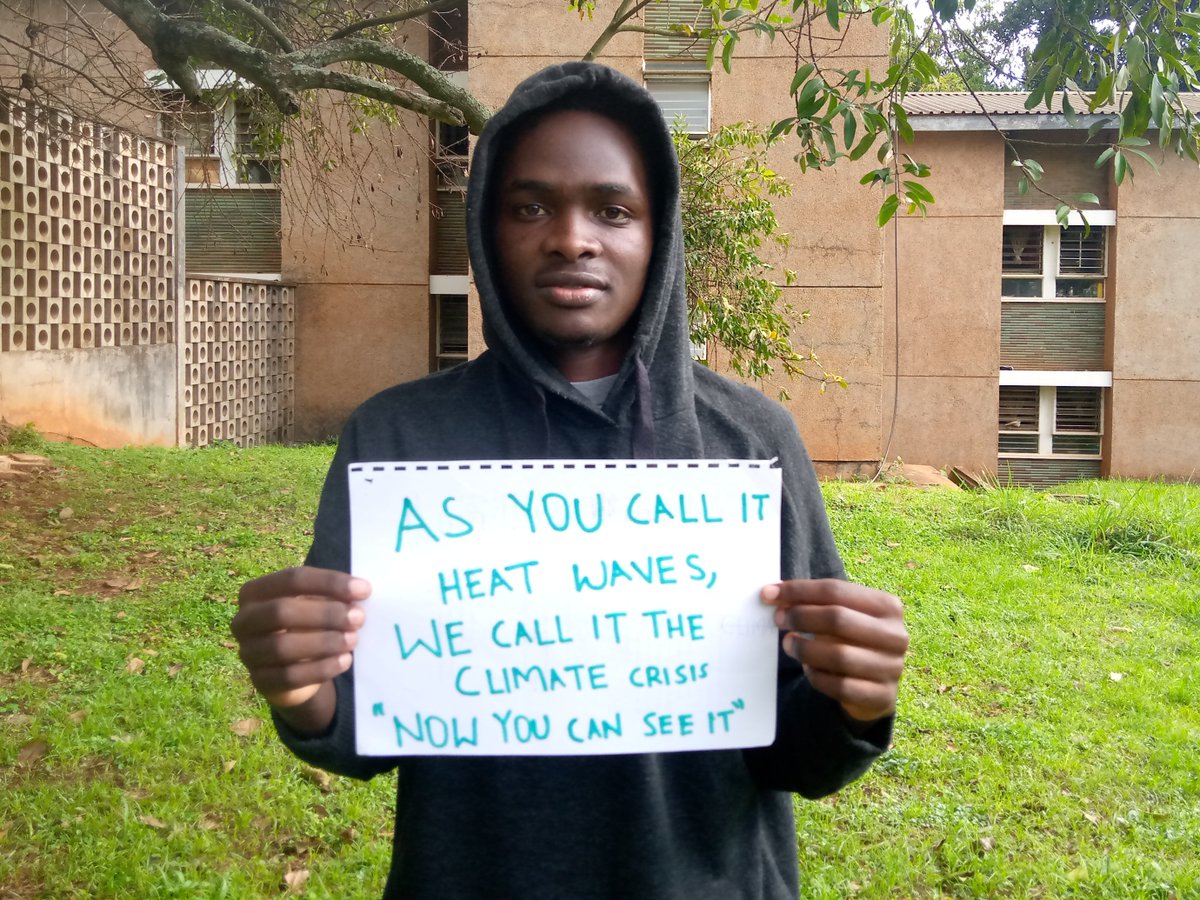 AS YOU CALL IT
HEAT WAVES,
WE CALL IT THE
CLIMATE CRISIS
"NOW YOU CAN SEE IT"